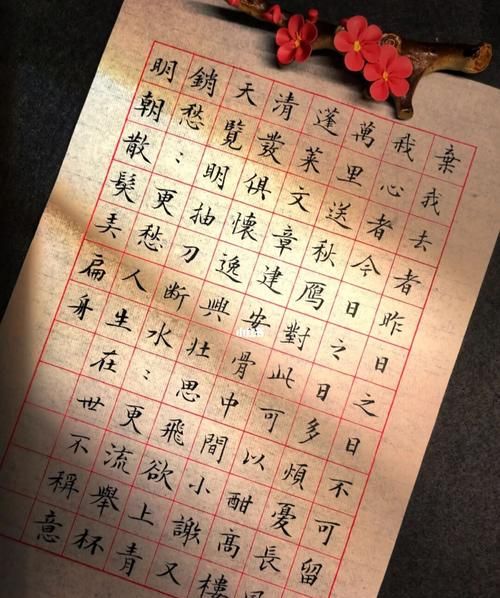 棄我去者昨日之日不可留
我心者今日之日多煩憂長風
萬里送秋鴈對此可以酣高樓
蓬萊文章建安骨中間小謝又
清發俱懷逸興壯思飛欲上青
天覽明抽刀斷水：更流舉杯
銷愁：更愁人生在世不稱意
明朝散髮弄扁舟